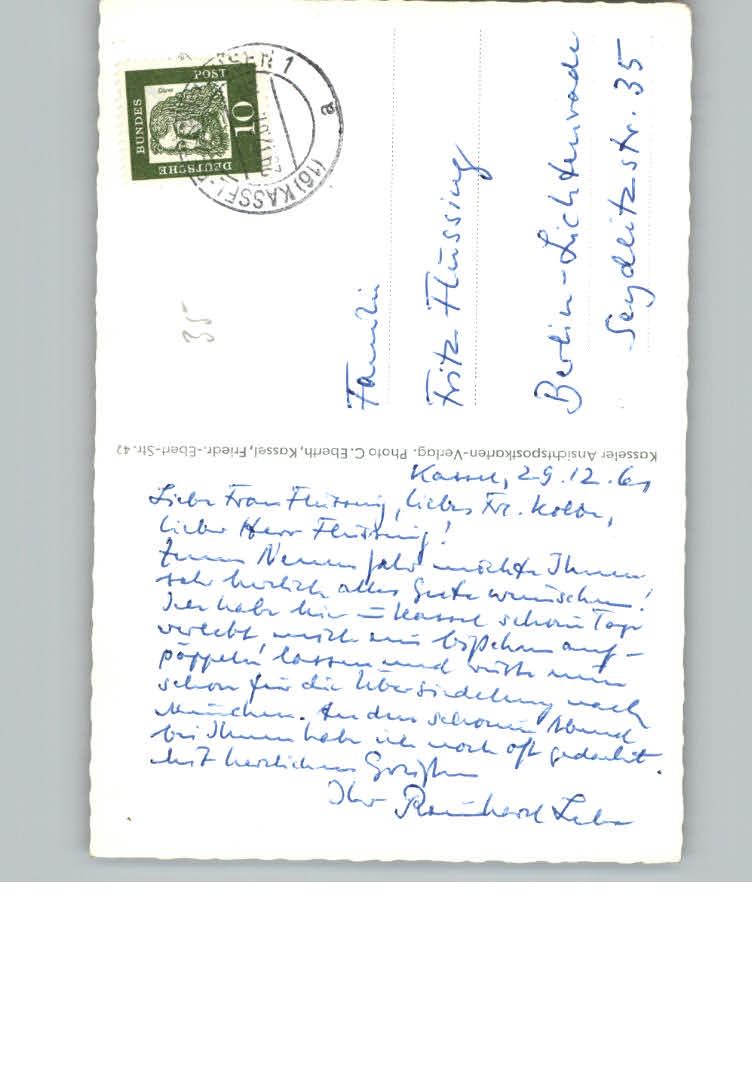 DEUTSCHE
BUNDES
POST
10
Dürer
(16) KASSEL
1
a
35
Familie
Fritz Flüssing
Berlin-Lichtenrade
Seydlitzstr. 35
Kasseler Ansichtspostkarten-Verlag. Photo C. Eberth, Kassel, Friedr.-Ebert-Str. 42
Kassel, 29.12.61
Liebe Frau Flüssing, liebes Frl. Kolbe,
lieber Herr Flüssing!
Zum Neuen Jahr möchte Ihnen
sehr herzlich alles Gute wünschen!
Ich habe hier in Kassel schöne Tage
verlebt, mich ein bißchen auf-
päppeln lassen und rüste nun
schon für die Übersiedelung nach
München. An den schönen Abend
bei Ihnen habe ich noch oft gedacht.
Mit herzlichen Grüßen
Ihr Reinhard